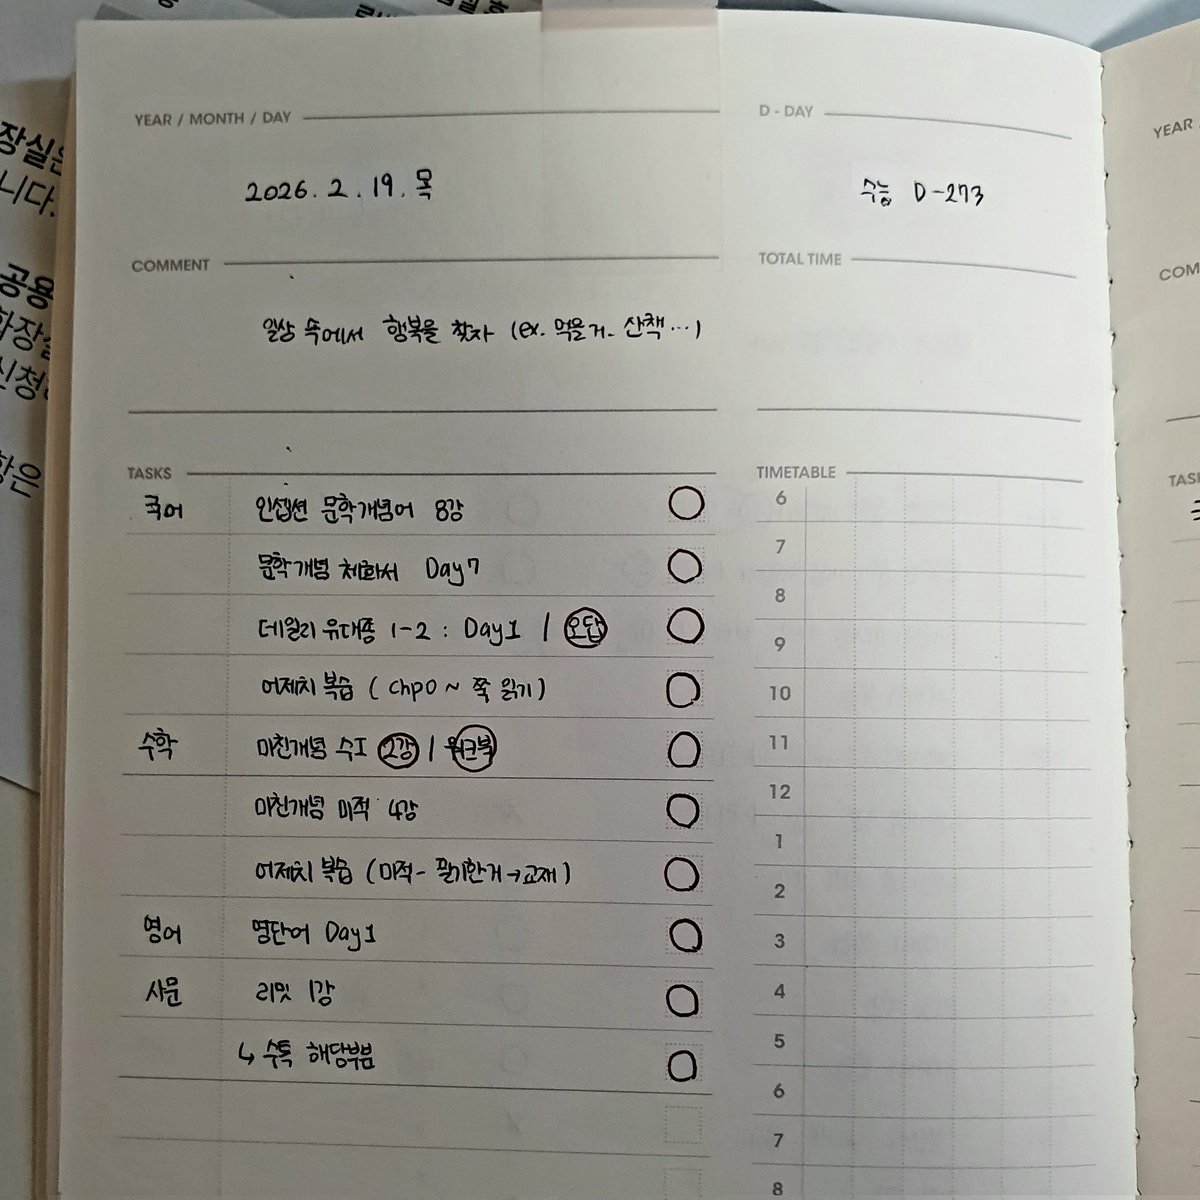 장실은
니다.
공용
화장실
신청
항은
YEAR / MONTH / DAY
2026. 2. 19. 목
D - DAY
수능 D-273
COMMENT
일상 속에서 행복을 찾자 (ex. 먹을거, 산책...)
TOTAL TIME
TASKS
국어 인셉션 문학개념어 8강
문학개념 체화서 Day7
데일리 유대종 1-2 : Day1 / 오답
어제치 복습 ( chp0 ~ 쭉 읽기)
수학 미친개념 수I 2강 / 워크북
미친개념 미적 4강
어제치 복습 (미적- 필기한거→교재)
영어 영단어 Day1
사문 리밋 1강
↳ 수특 해당부분
TIMETABLE
6
7
8
9
10
11
12
1
2
3
4
5
6
7
8
YEAR
COM
TASK